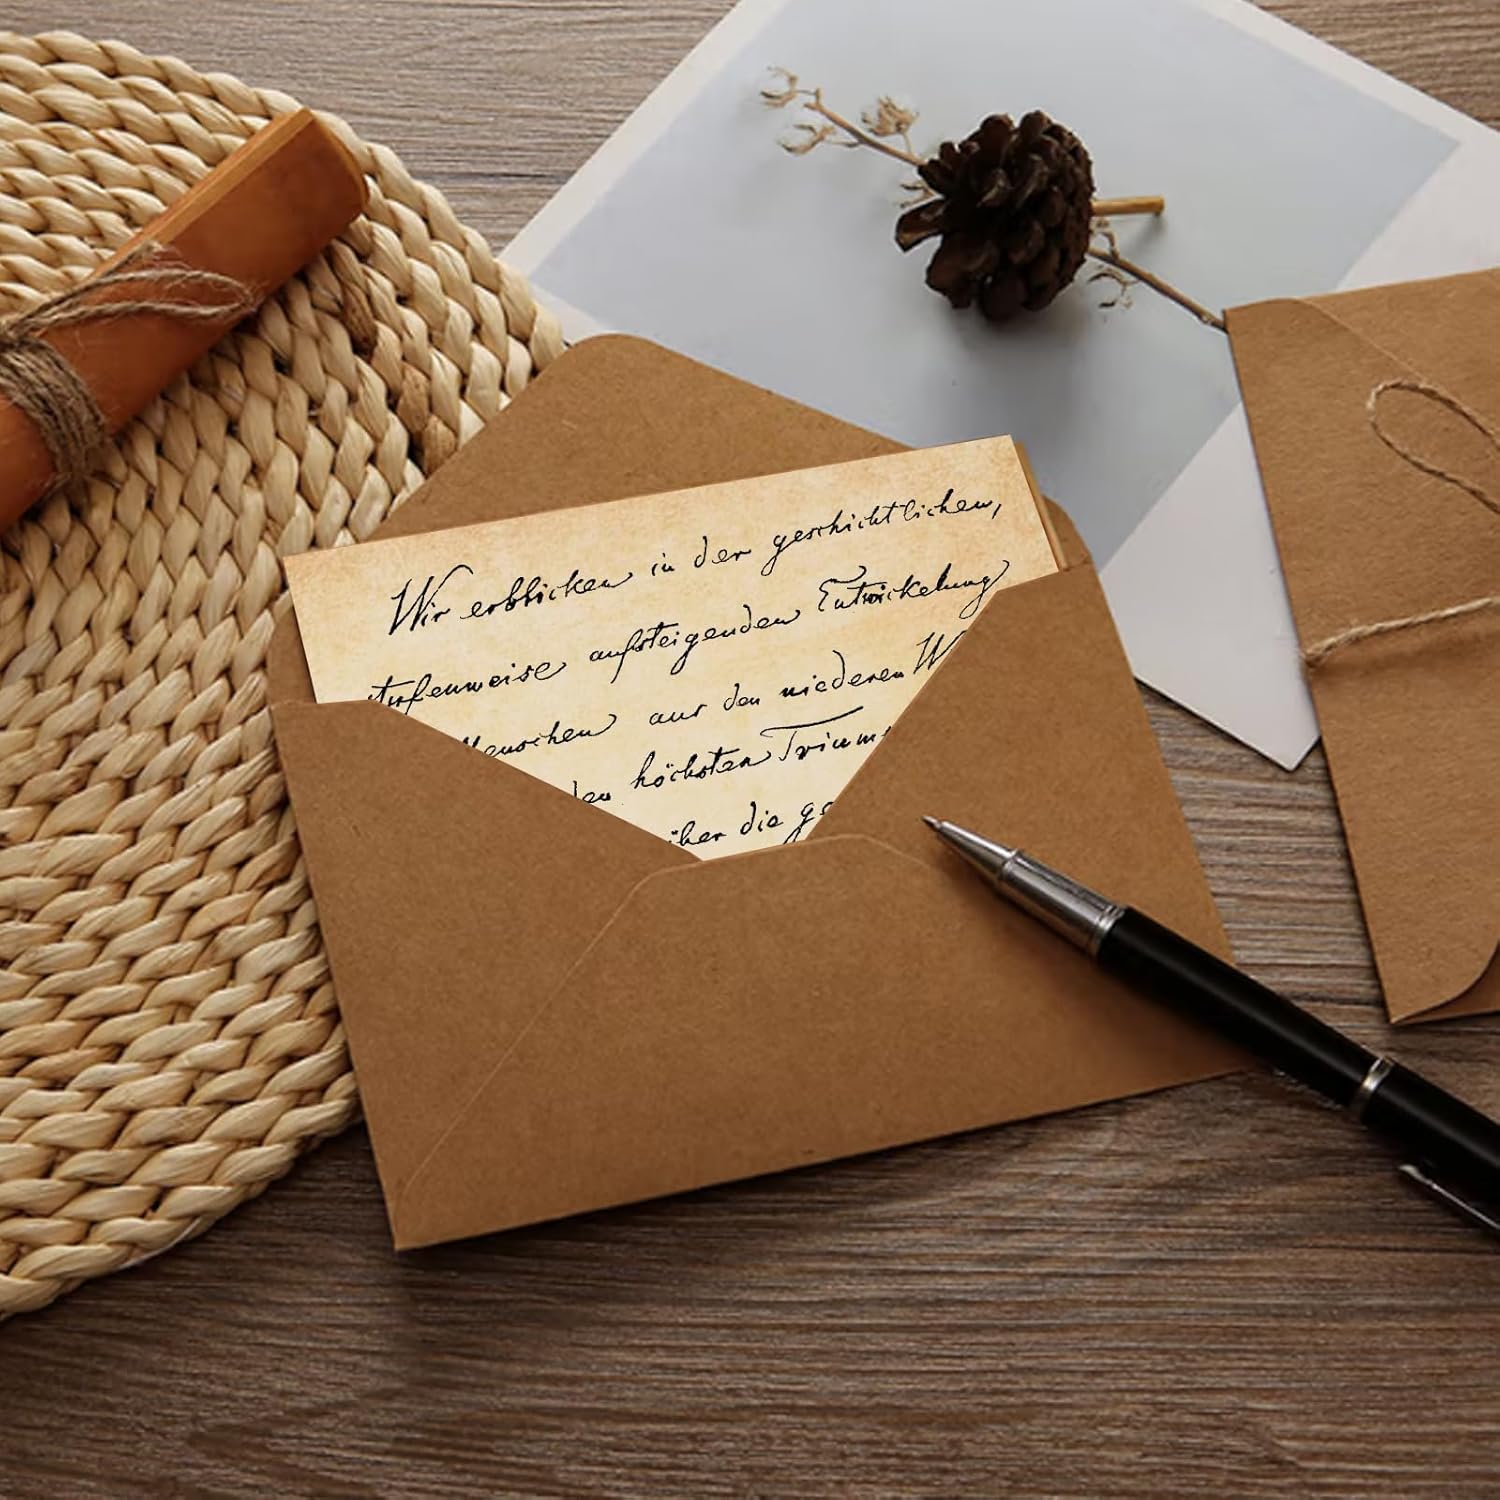 Wir erblicken in der geschichtlichen,
stufenweise aufsteigenden Entwickelung
Menschen aus den niederen W
den höchsten Trium
über die ge